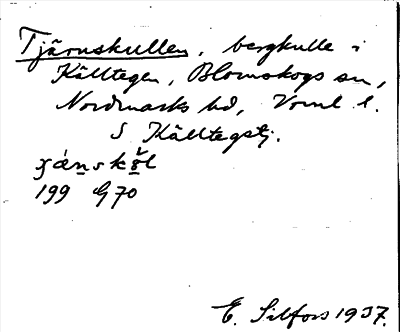 Tjärnskullen, bergkulle i
Källtegen, Blomskogs sn,
Nordmarks hd, Vrml. l.
S Källtegstj.
ɣá̀nskŏ̤l
199 G70
E. Silfors 1937.